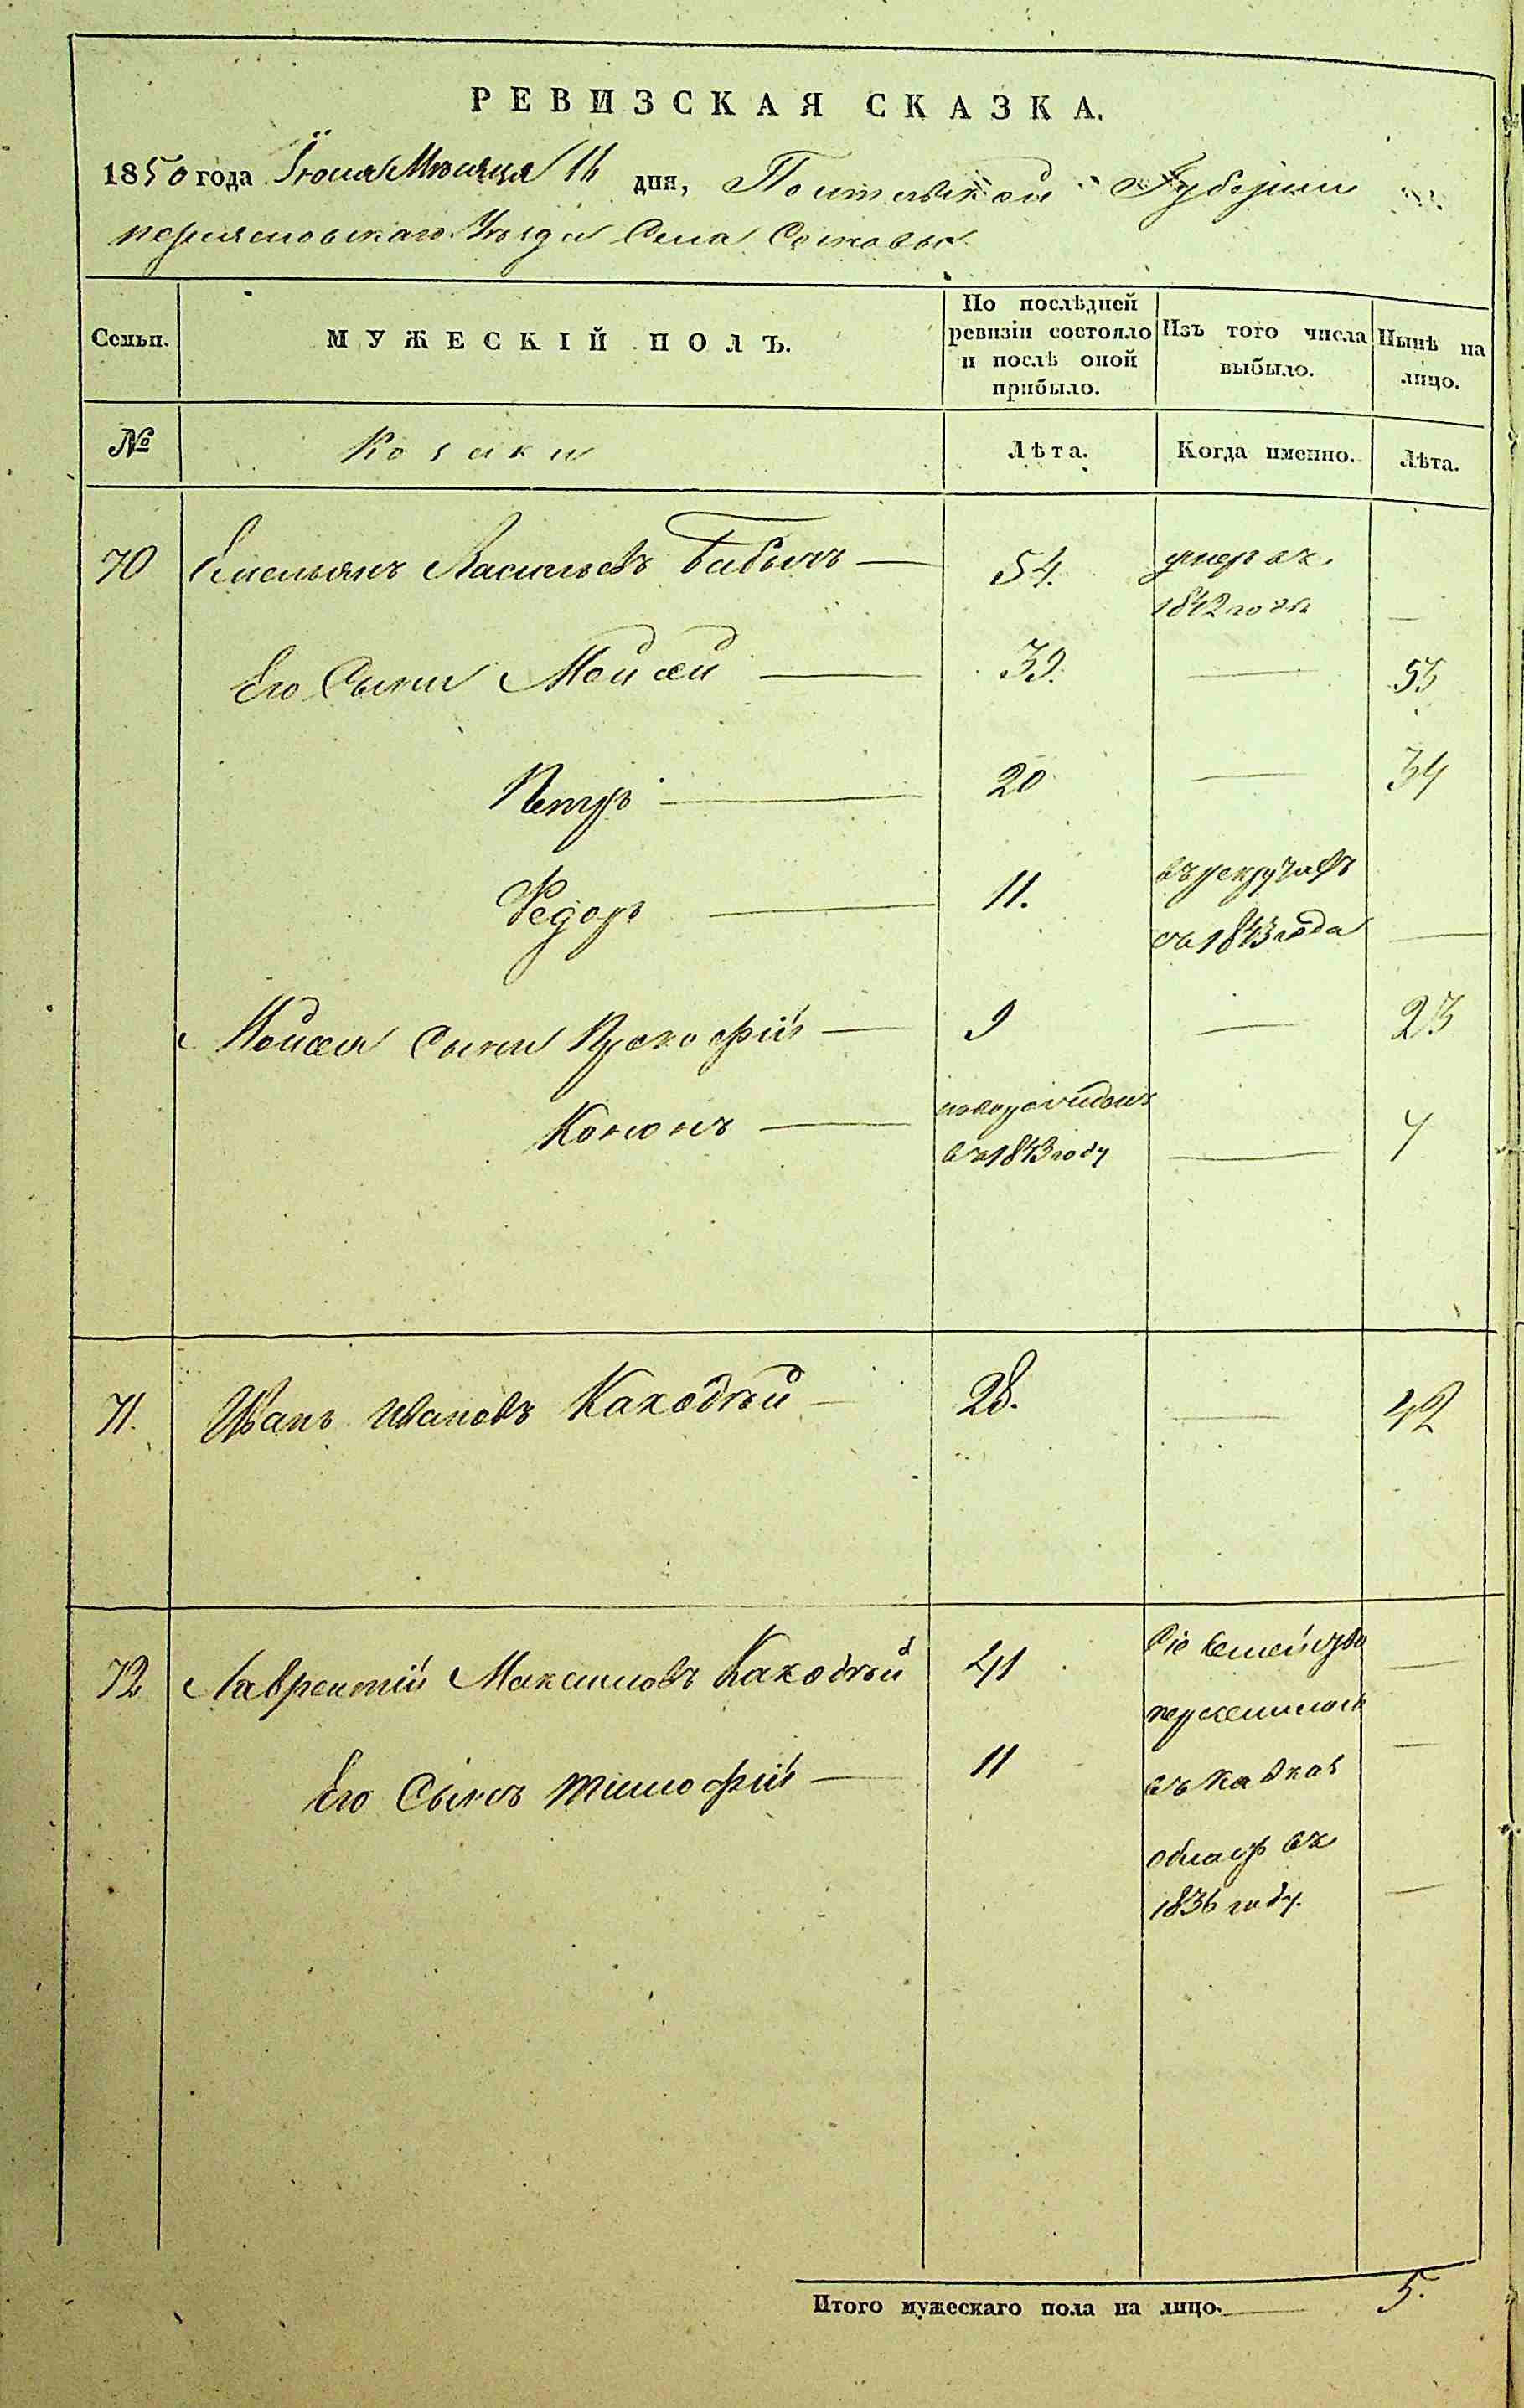 РЕВИЗСКАЯ СКАЗКА.
1850 года Іюня Месяца 16 дня, Полтавской Губерніи
переясловскаго Уезда Села Сомковы
Семьи.
МУЖЕСКІЙ ПОЛЪ.
По послѣдней ревизіи состояло и послѣ оной прибыло.
Изъ того числа выбыло.
Нынѣ на лицо.
№
Козаки
Лѣта.
Когда именно.
Лѣта.
70 Емельянъ Васильевъ Бабычъ — 54. умеръ въ
1842 года —
Его Сыни Мойсей — 39. — 53
Петръ — 20 — 34
Федоръ — 11. въ рекрутахъ
съ 1843 года —
Мойсея Сыни Прокофій — 9 — 23
Кононъ — новорожденъ
въ 1843 году — 7
71. Иванъ Ивановъ Каходный — 28. — 42
72 Лаврентій Максимовъ Каходный 41 Сіе Семейство —
переселилось
Его Сынъ тимофій — 11 въ Кавказ —
област въ
1836 году. —
Итого мужескаго пола на лицо. — 5.